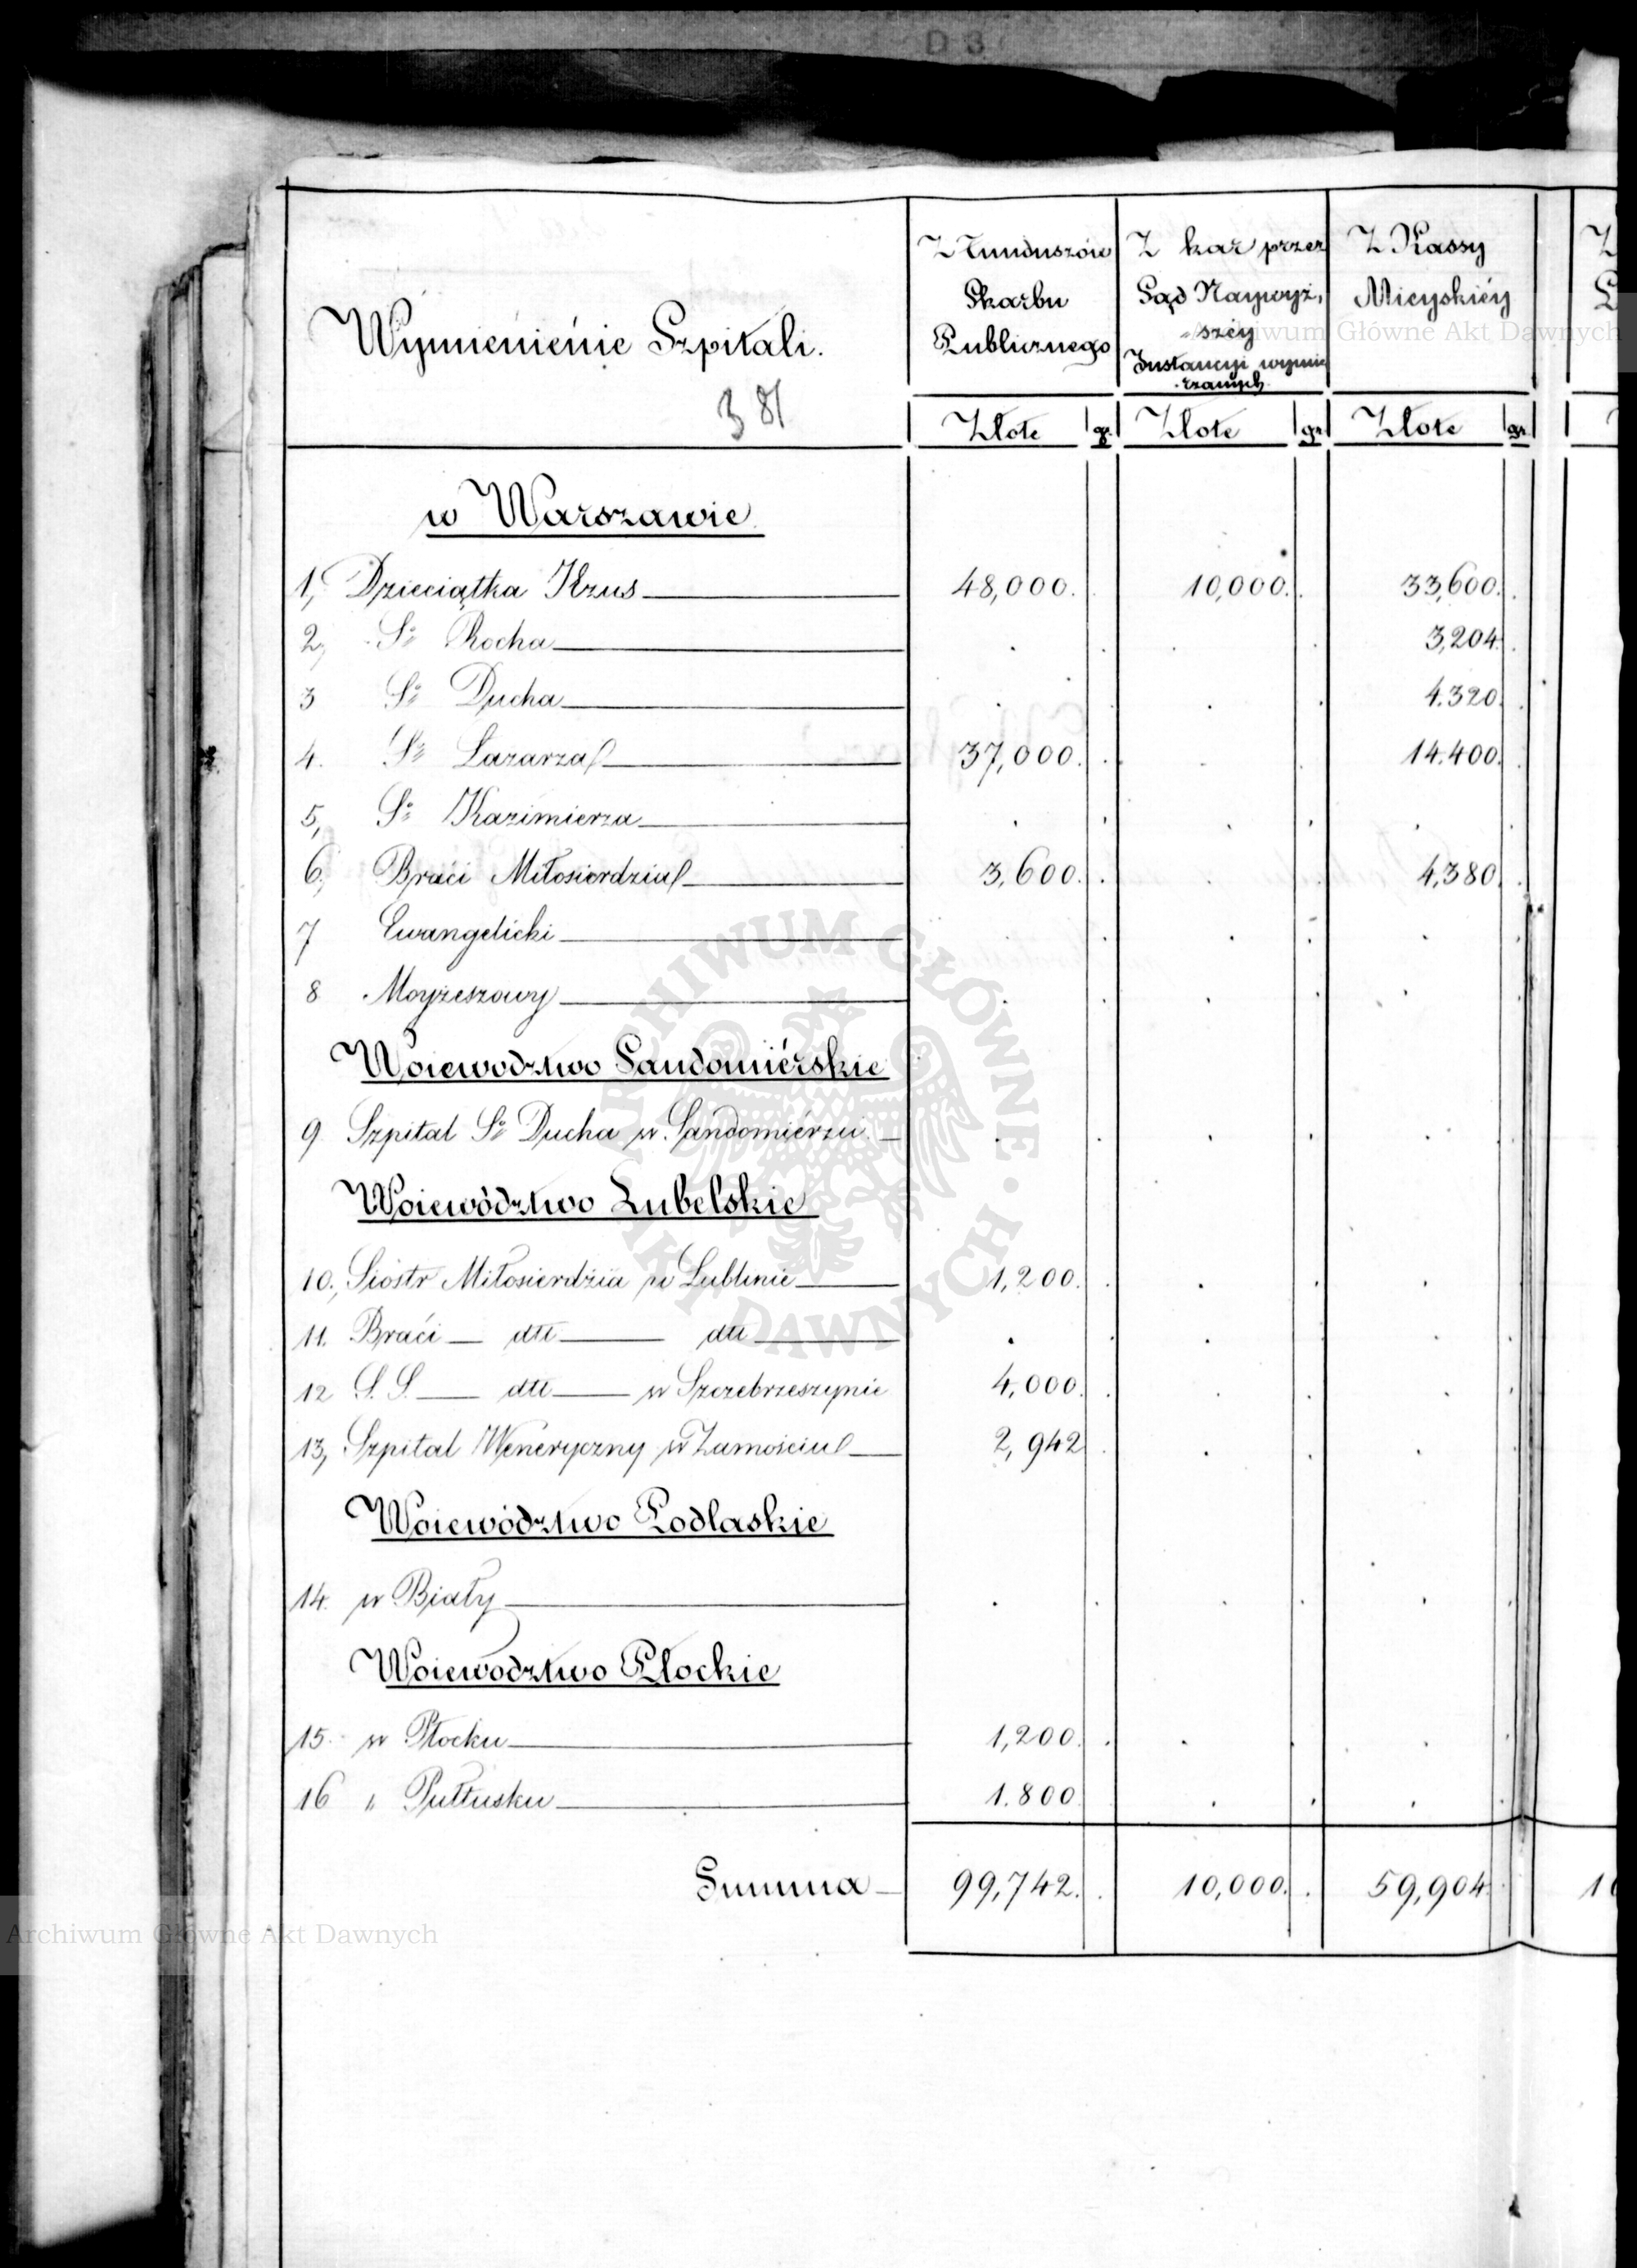 D 3
Wymienienie Szpitali.
381
Z Funduszów
Skarbu
Publicznego
Z kar przez
Sąd Naywyż,
„széy
Instancyi wymie
rzanych
Z Kassy
Mieyskiéy
Złote gr. Złote gr. Złote gr.
w Warszawie
1, Dzieciątka Jezus 48,000. 10,000. 33,600.
2, Sº Rocha 3,204.
3 Sº Ducha 4.320.
4. Sº Lazarza 37,000. 14.400.
5, Sº Kazimierza
6, Braci Miłosierdzia 3,600. 4,380.
7 Ewangelicki
8 Moyżeszowy
Woiewodztwo Sandomiérskie
9 Szpital Sº Ducha w Sandomiérzu
Woiewództwo Lubelskie
10., Sióstr Miłosierdzia w Lublinie 1,200.
11. Braci dtt dtt
12 S. S. dtt w Szczebrzeszynie 4,000.
13, Szpital Weneryczny w Zamościu 2,942
Woiewództwo Podlaskie
14. w Biały
Woiewodztwo Płockie
15. w Płocku 1,200.
16 „ Pułtusku 1.800
Summa 99,742. 10,000. 59,904.
Archiwum Główne Akt Dawnych
Archiwum Główne Akt Dawnych
ARCHIWUM GŁÓWNE AKT DAWNYCH